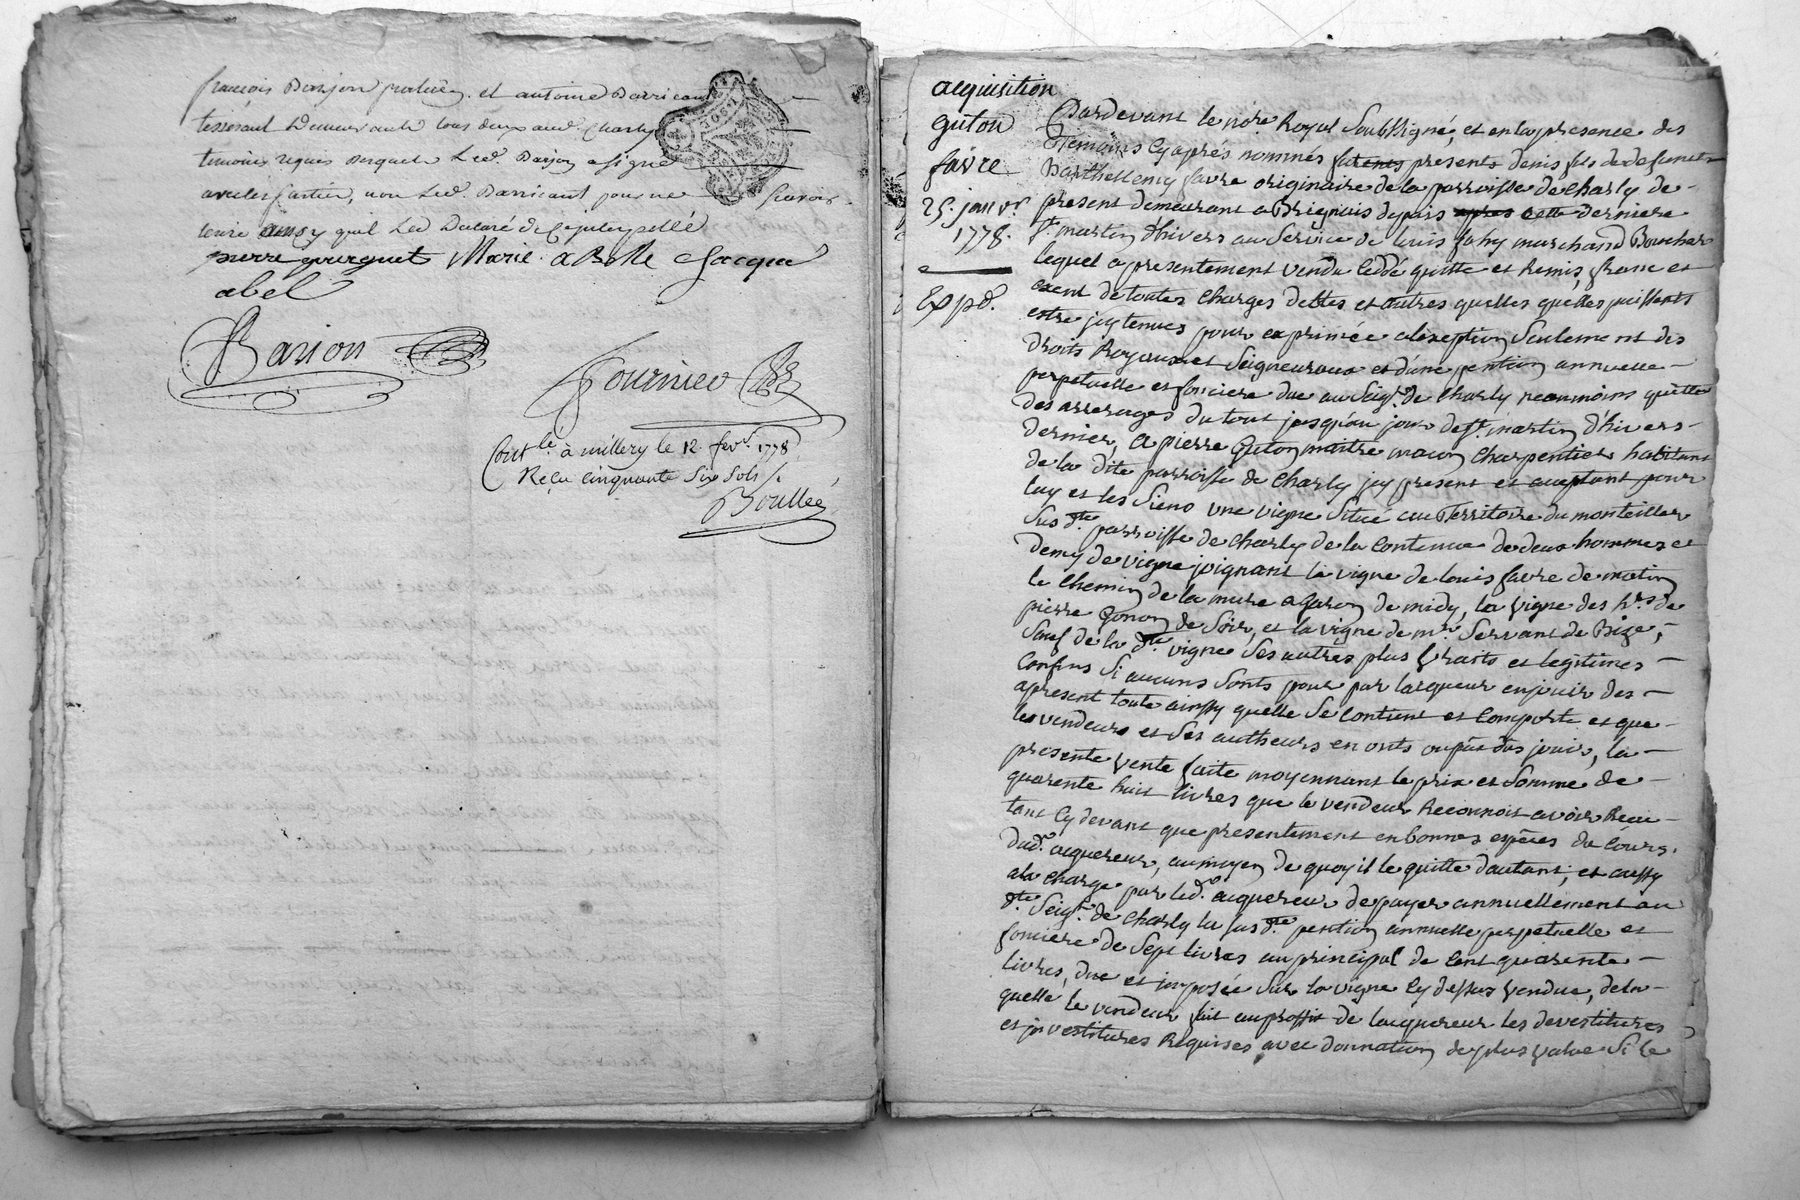 françois Barjon praticien et antoine Darricaut
tisserant demeurants tous deux aud. Charly
temoins requis duquels led. Barjon a signé
avec les parties, non led. Darricaut pour ne savoir
ecrire ainsy quil led declaré de ce interpellé
pierre gourguet Marie abelle Jacque
abel
Barjon
fournier
Cont.lé à millery le 12. fevr. 1778
Reçu cinquante six sols
Boullée
acquisition
guton
favre
25. janvr.
1778.
Expd.
Pardevant le nore. Royal soubssigné, et en la presence des
Temoins cy après nommés fut present denis fils de defunct
Barthellemy favre originaire de la parroisse de charly de
present demeurant a Brignais depuis cette derniere
st. martin d'hivers au service de louis fahy marchand Boucher
lequel a presentement vendu ceddé quitté et Remis, franc et
exent de toutes charges debtes et autres quelles quelles puissent
estre jcy tenues pour exprimée aléxeption seulement des
droits Royaux et seigneuriaux et d'une pention annuelle
perpetuelle et fonciere due au seigr. de charly neanmoins quitte
des arrerages du tout jusqu'au jour de st. martin d'hivers
dernier, a pierre Guton maitre maçon charpentier habitant
de la dite parroisse de charly jcy present et acceptant pour
luy et les siens une vigne située au Territoire du monteiller
susdte. parroisse de charly de la contenue de deux hommes et
demy de vigne joignant la vigne de louis favre de matin
le chemin de la mure a Garon de midy, la vigne des hrs. de
pierre Gonon de soir, et la vigne de mr. servant de Bize,
sauf de la dte. vigne ses autres plus vraits et legitimes
confins si aucuns sonts pour par lacquereur en jouir des
apresent toute ainssy quelle se contient et comporte et que
le vendeur et ses autheurs en onts ou pûs dûs jouir, la
presente vente faite moyennant le prix et somme de
quarente huit livres que le vendeur Reconnoit avoir Reçu
tant cy devant que presentement en bonnes espèces du cours,
dud. acquereur, au moyen de quoy il le quitte d'autant, et aussy
a la charge par led. acquereur de payer annuellement au
dt. seigr. de charly la susdte. pention annuelle perpetuelle et
fonciere de sept livres au principal de cent quarente
livres, due et jmposée sur la vigne cy dessus vendue, de la
quelle le vendeur fait au proffit de lacquereur les devestitures
et jnvestitures Requises avec donnation de plus value si le